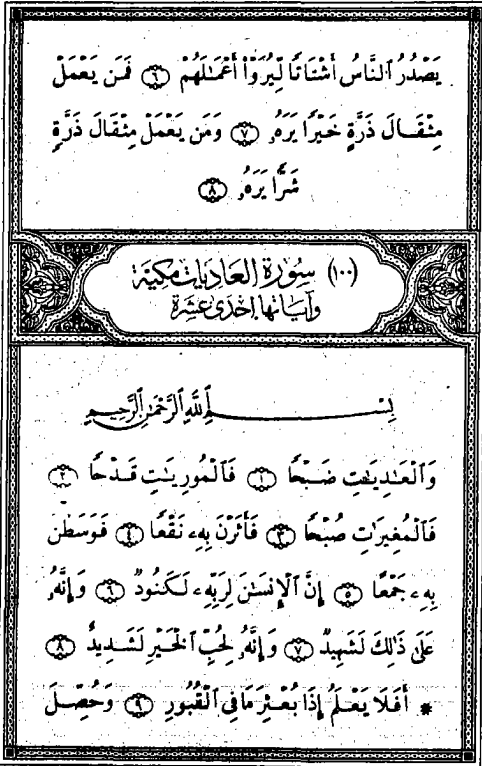 يَصْدُرُ ٱلنَّاسُ أَشْتَاتًا لِّيُرَوْا۟ أَعْمَـٰلَهُمْ ۝٦ فَمَن يَعْمَلْ
مِثْقَالَ ذَرَّةٍ خَيْرًا يَرَهُۥ ۝٧ وَمَن يَعْمَلْ مِثْقَالَ ذَرَّةٍ
شَرًّا يَرَهُۥ ۝٨
(١٠٠) سُورَة العَاديَات مكيّة
وَآيَاتها إحْدى عَشَرة
بِسْمِ ٱللَّهِ ٱلرَّحْمَـٰنِ ٱلرَّحِيمِ
وَٱلْعَـٰدِيَـٰتِ ضَبْحًا ۝١ فَٱلْمُورِيَـٰتِ قَدْحًا ۝٢
فَٱلْمُغِيرَٰتِ صُبْحًا ۝٣ فَأَثَرْنَ بِهِۦ نَقْعًا ۝٤ فَوَسَطْنَ
بِهِۦ جَمْعًا ۝٥ إِنَّ ٱلْإِنسَـٰنَ لِرَبِّهِۦ لَكَنُودٌ ۝٦ وَإِنَّهُۥ
عَلَىٰ ذَٰلِكَ لَشَهِيدٌ ۝٧ وَإِنَّهُۥ لِحُبِّ ٱلْخَيْرِ لَشَدِيدٌ ۝٨
* أَفَلَا يَعْلَمُ إِذَا بُعْثِرَ مَا فِى ٱلْقُبُورِ ۝٩ وَحُصِّلَ